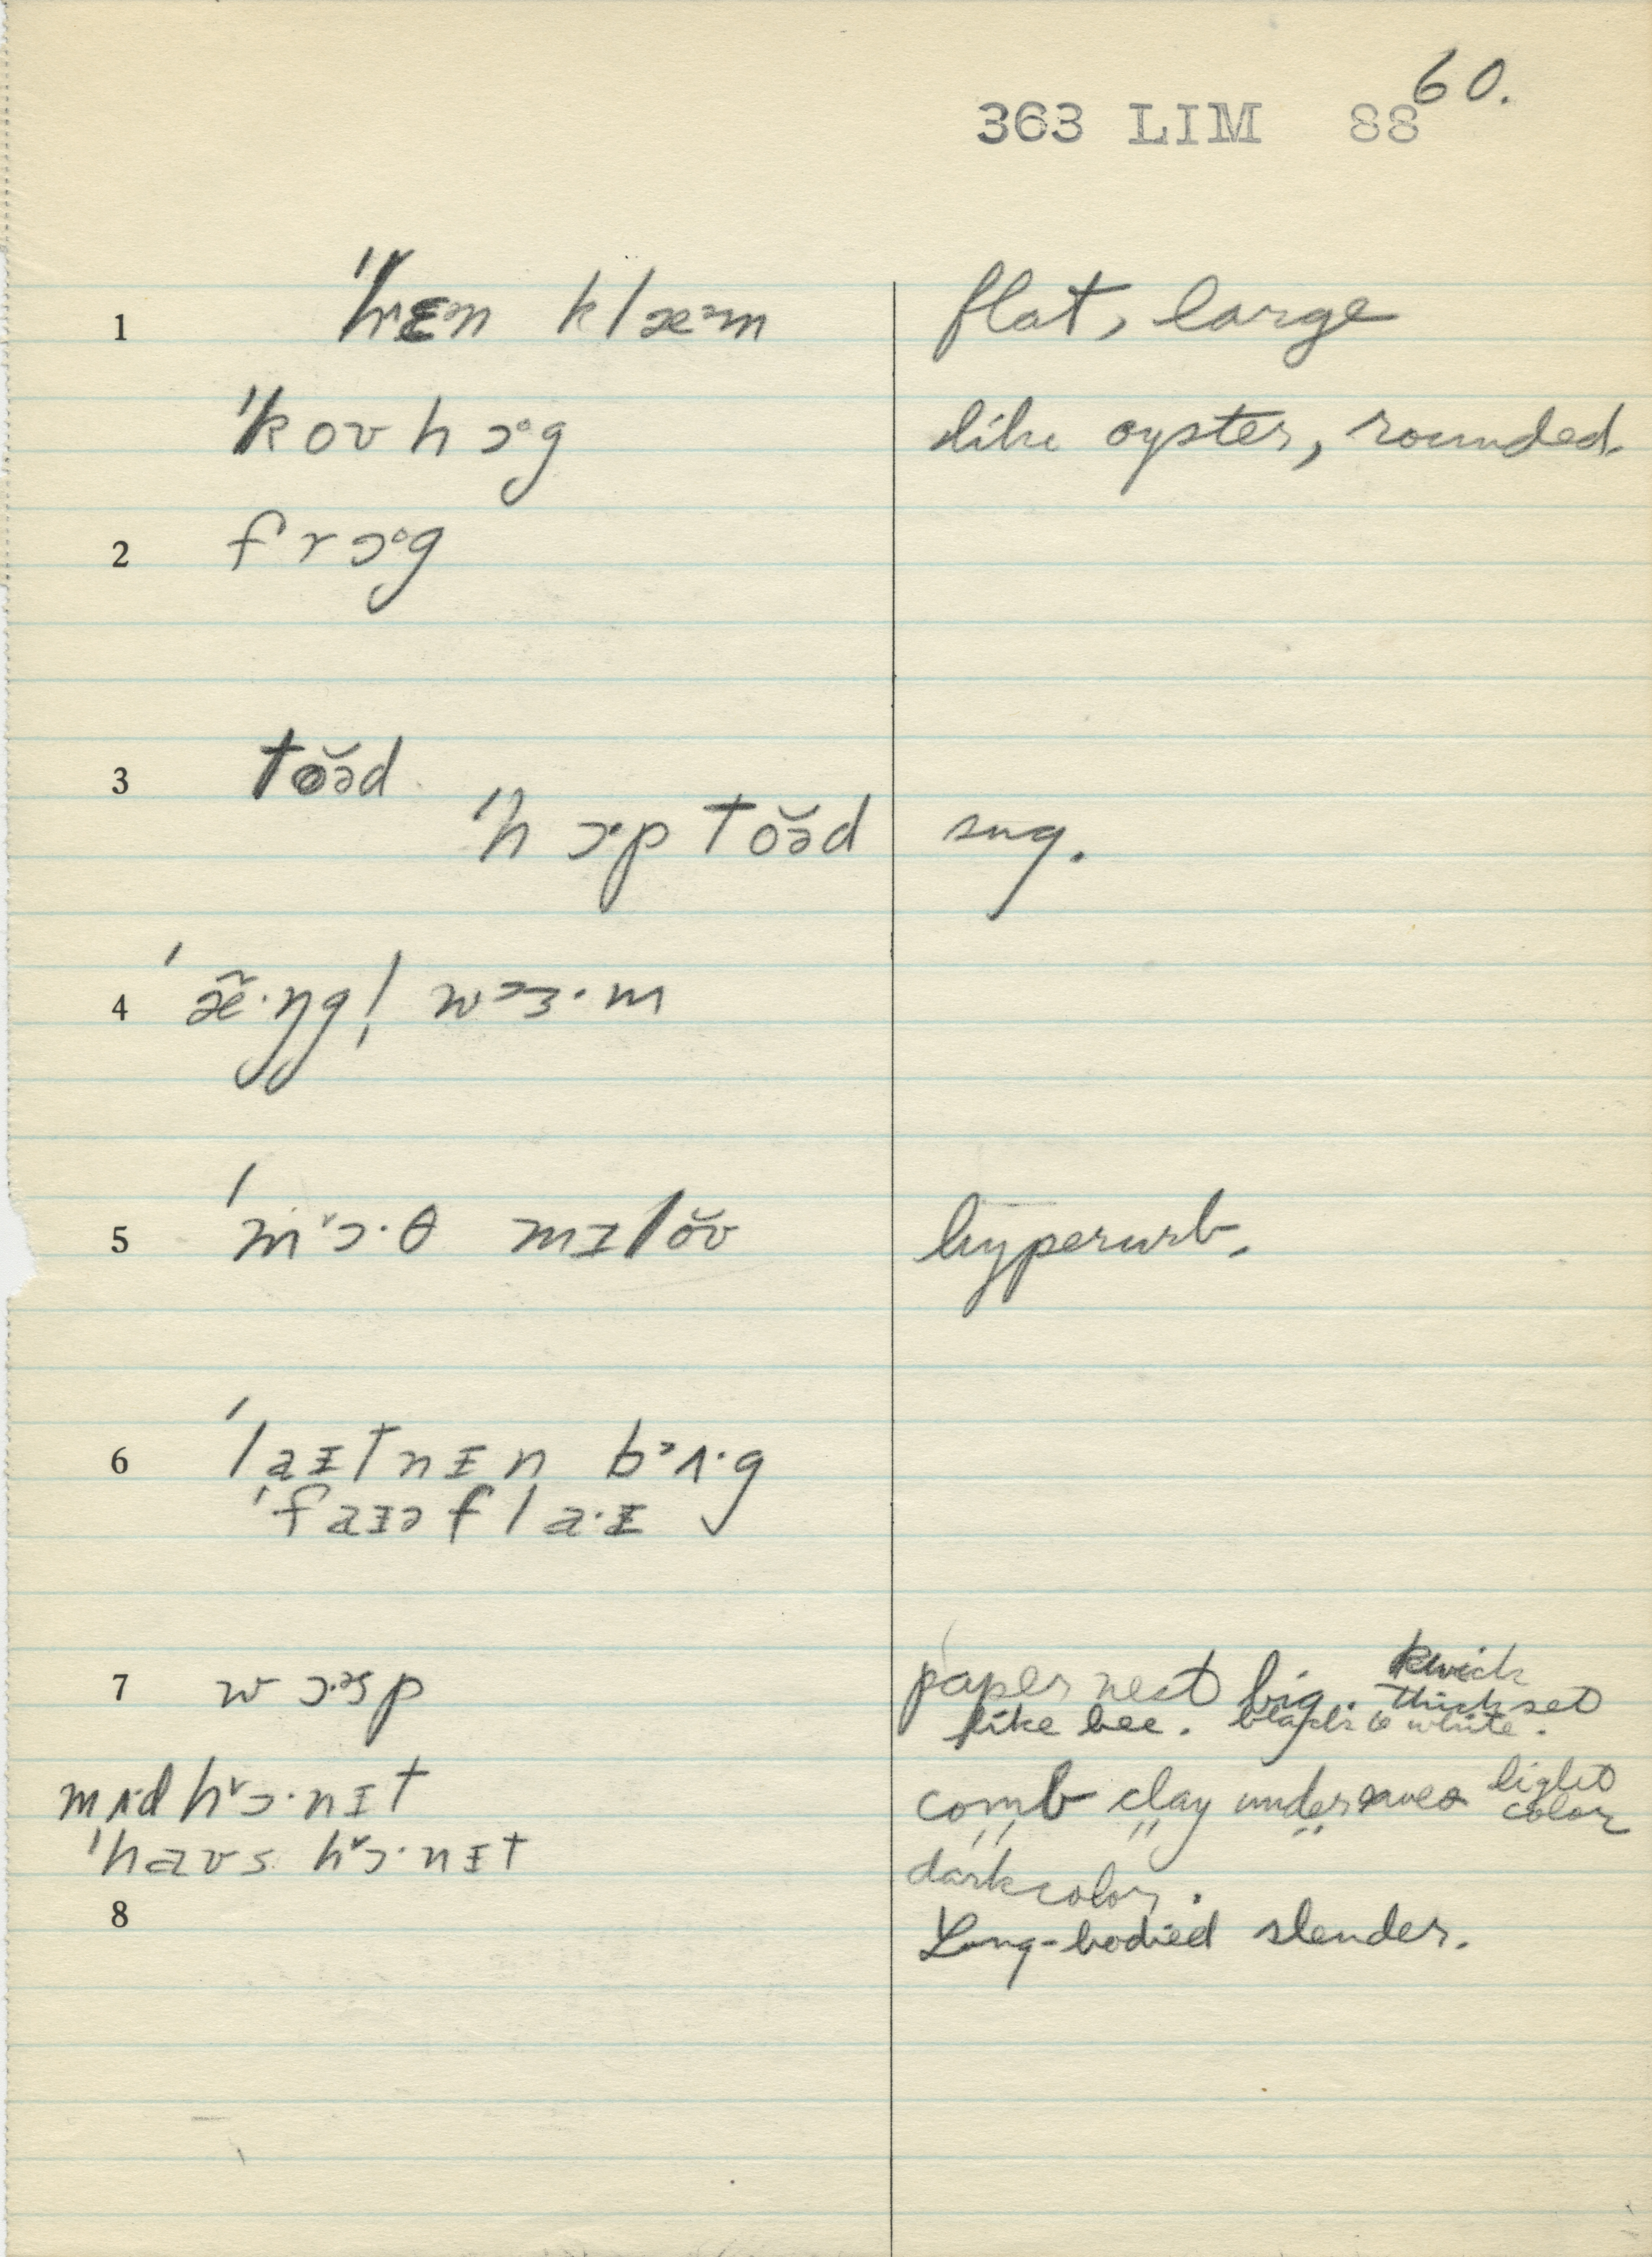 60.
363 LIM 88
1 ˈhɛᵊn klæᵊm flat, large
ˈkoʊhɔᵒg like oyster, rounded.
2 frɔᵒg
3 tŏəd
ˈhɔpˑtŏəd sug.
4 ˈæ̃ˑŋgl̩ wᵊɜˑm
5 ˈmᵛɔˑθ mɪlŏʊ hyperurb.
6 ˈlaɪtnɪn bᵊʌˑg
ˈfaɪəflaˑɪ
7 wɔˑᵊsp paper nest big. thick set
like bee. black & white.
mʌdhᵛɔˑnɪt comb clay under eaves light color
ˈhaʊs hᵛɔˑnɪt dark color.
8 Long-bodied slender.